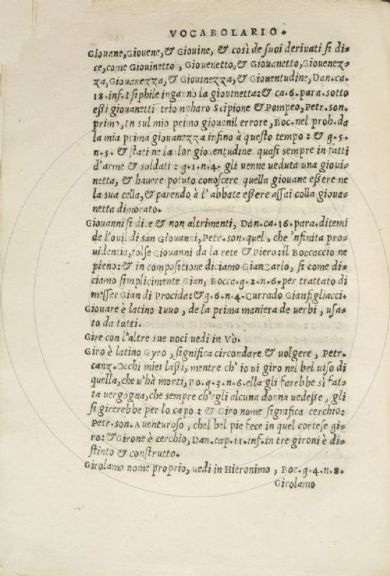 VOCABOLARIO.
Giouene, Giouene, & Giouine, & così de suoi deriuati si di=
ce, come Giouinetto, Giouenetto, & Giouanetto, Giouenez=
za, Giouanezza, & Giouinezza, & Giouentudine, Dan. ca.
18. inf. Isiphile ingannò la giouinetta: & ca. 6. para. sotto
essi giouanetti trionpharo Scipione & Pompeo, Petr. son.
primo, In sul mio primo giouenil errore, Boc. nel proh. da
la mia prima giouanezza infino à questo tempo: & g. 5.
n. 5. & stati ne la lor giouentudine quasi sempre in fatti
d'arme & soldati: g. 1. n. 4. gli uenne ueduta una gioui=
netta, & hauere potuto conoscere quella giouane essere ne
la sua cella, & parendo à l'abbate essere assai colla gioua=
netta dimorato.
Giouanni si dice & non altrimenti, Dan. ca. 16. para. ditemi
de l'ouil di san Giouanni, Petr. son. quel, che 'nfinita pro=
uidentia, tolse Giouanni da la rete & Piero: il Boccaccio ne
pieno: & in compositione diciamo Gian Carlo, si come di=
ciamo simplicemente Gian, Bocca. g. 2. n. 6. per trattato di
messer Gian di Procida: & g. 6. n. 4. Currado Gianfigliacci.
Giouare è latino Iuuo, de la prima maniera de uerbi, usa=
to da tutti.
Gire con l'altre sue uoci uedi in Vò.
Giro è latino Gyro, significa circondare & uolgere, Petr.
canz. Occhi miei lassi, mentre ch' io ui giro nel bel uiso di
quella, che u'hà morti, Bo. g. 3. n. 6. ella gli farebbe sì fat=
ta uergogna, che sempre ch'egli alcuna donna uedesse, gli
si girerebbe per lo capo: & Giro nome significa cerchio:
Petr. son. Auenturoso, che l bel pie fece in quel cortese gi=
ro: & Girone è cerchio, Dan. cap. 11. inf. in tre gironi è di=
stinto & construtto.
Girolamo nome proprio, uedi in Hieronimo, Boc. g. 4. n. 8.
Girolamo